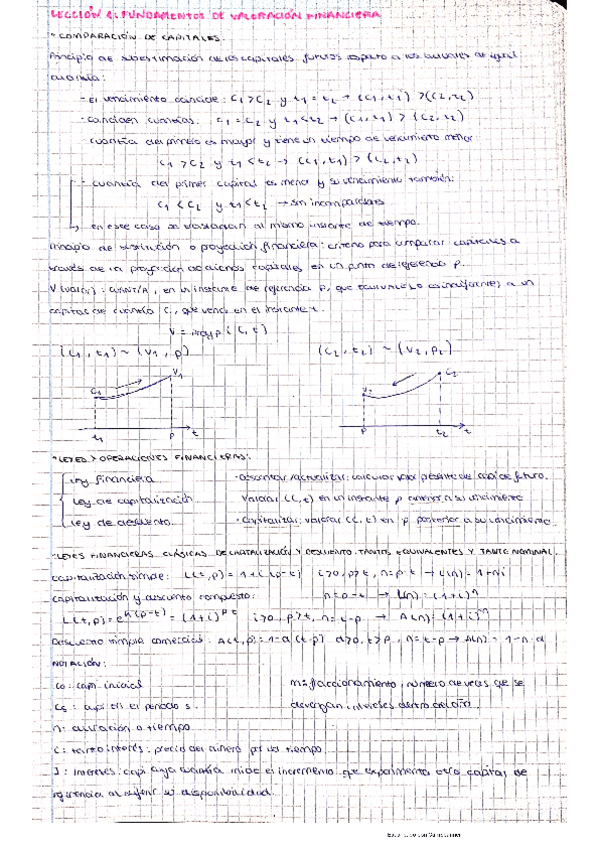 LECCIÓN 1: FUNDAMENTOS DE VALORACIÓN FINANCIERA
* COMPARACIÓN DE CAPITALES.
Principio de subestimación de los capitales futuros respecto a los actuales de igual
cuantía:
- El vencimiento coincide: C1 > C2 y t1 = t2 → (C1, t1) > (C2, t2)
- coinciden cuantías: C1 = C2 y t1 < t2 → (C1, t1) > (C2, t2)
- cuantía del primero es mayor y tiene un tiempo de vencimiento menor:
C1 > C2 y t1 < t2 → (C1, t1) > (C2, t2)
- cuantía del primer capital es menor y su vencimiento también:
C1 < C2 y t1 < t2 → sin incomparables
↳ en este caso se valorarían al mismo instante de tiempo.
Principio de sustitución o proyección financiera: criterio para comparar capitales a
través de la proyección de dichos capitales en un punto de referencia p.
V (valor): CUANTÍA, en un instante de referencia P, que equivale (o es indiferente) a un
capital de cuantía C, que vence en el instante t.
V = proy p (C, t)
(C1, t1) ~ (V1, p) (C2, t2) ~ (V2, p2)
C1 V1 t1 p t
V2 C2 p t2 t
* LEYES Y OPERACIONES FINANCIERAS:
Ley financiera
Ley de capitalización
Ley de descuento
· Descontar/actualizar: calcular valor presente del capi de futuro.
Valorar (C, t) en un instante p anterior a su vencimiento
· Capitalizar: valorar (C, t) en p posterior a su vencimiento.
* LEYES FINANCIERAS CLÁSICAS DE CAPITALIZACIÓN Y DESCUENTO. TANTOS EQUIVALENTES Y TANTO NOMINAL.
capitalización simple: L(t, p) = 1 + i (p-t) i>0, p>t, n = p-t → L(n) = 1+ni
capitalización y descuento compuesto: n = p-t → L(n) = (1+i)^n
L(t, p) = e^k(p-t) = (1+i)^p-t i>0, p>t, n = t-p → A(n) = (1+i)^n
Descuento simple comercial: A(t, p) = 1-d (t-p) d>0, t>p, n = t-p → A(n) = 1-n·d
NOTACIÓN:
Co: capi. inicial
Cs: capi en el periodo s.
n: duración o tiempo
i: tanto interés: precio del dinero por ud tiempo.
I: Intereses: capi cuya cuantía mide el incremento que experimenta otro capital de
referencia al diferir su disponibilidad.
m = fraccionamiento: número de veces que se
devengan intereses dentro del año.